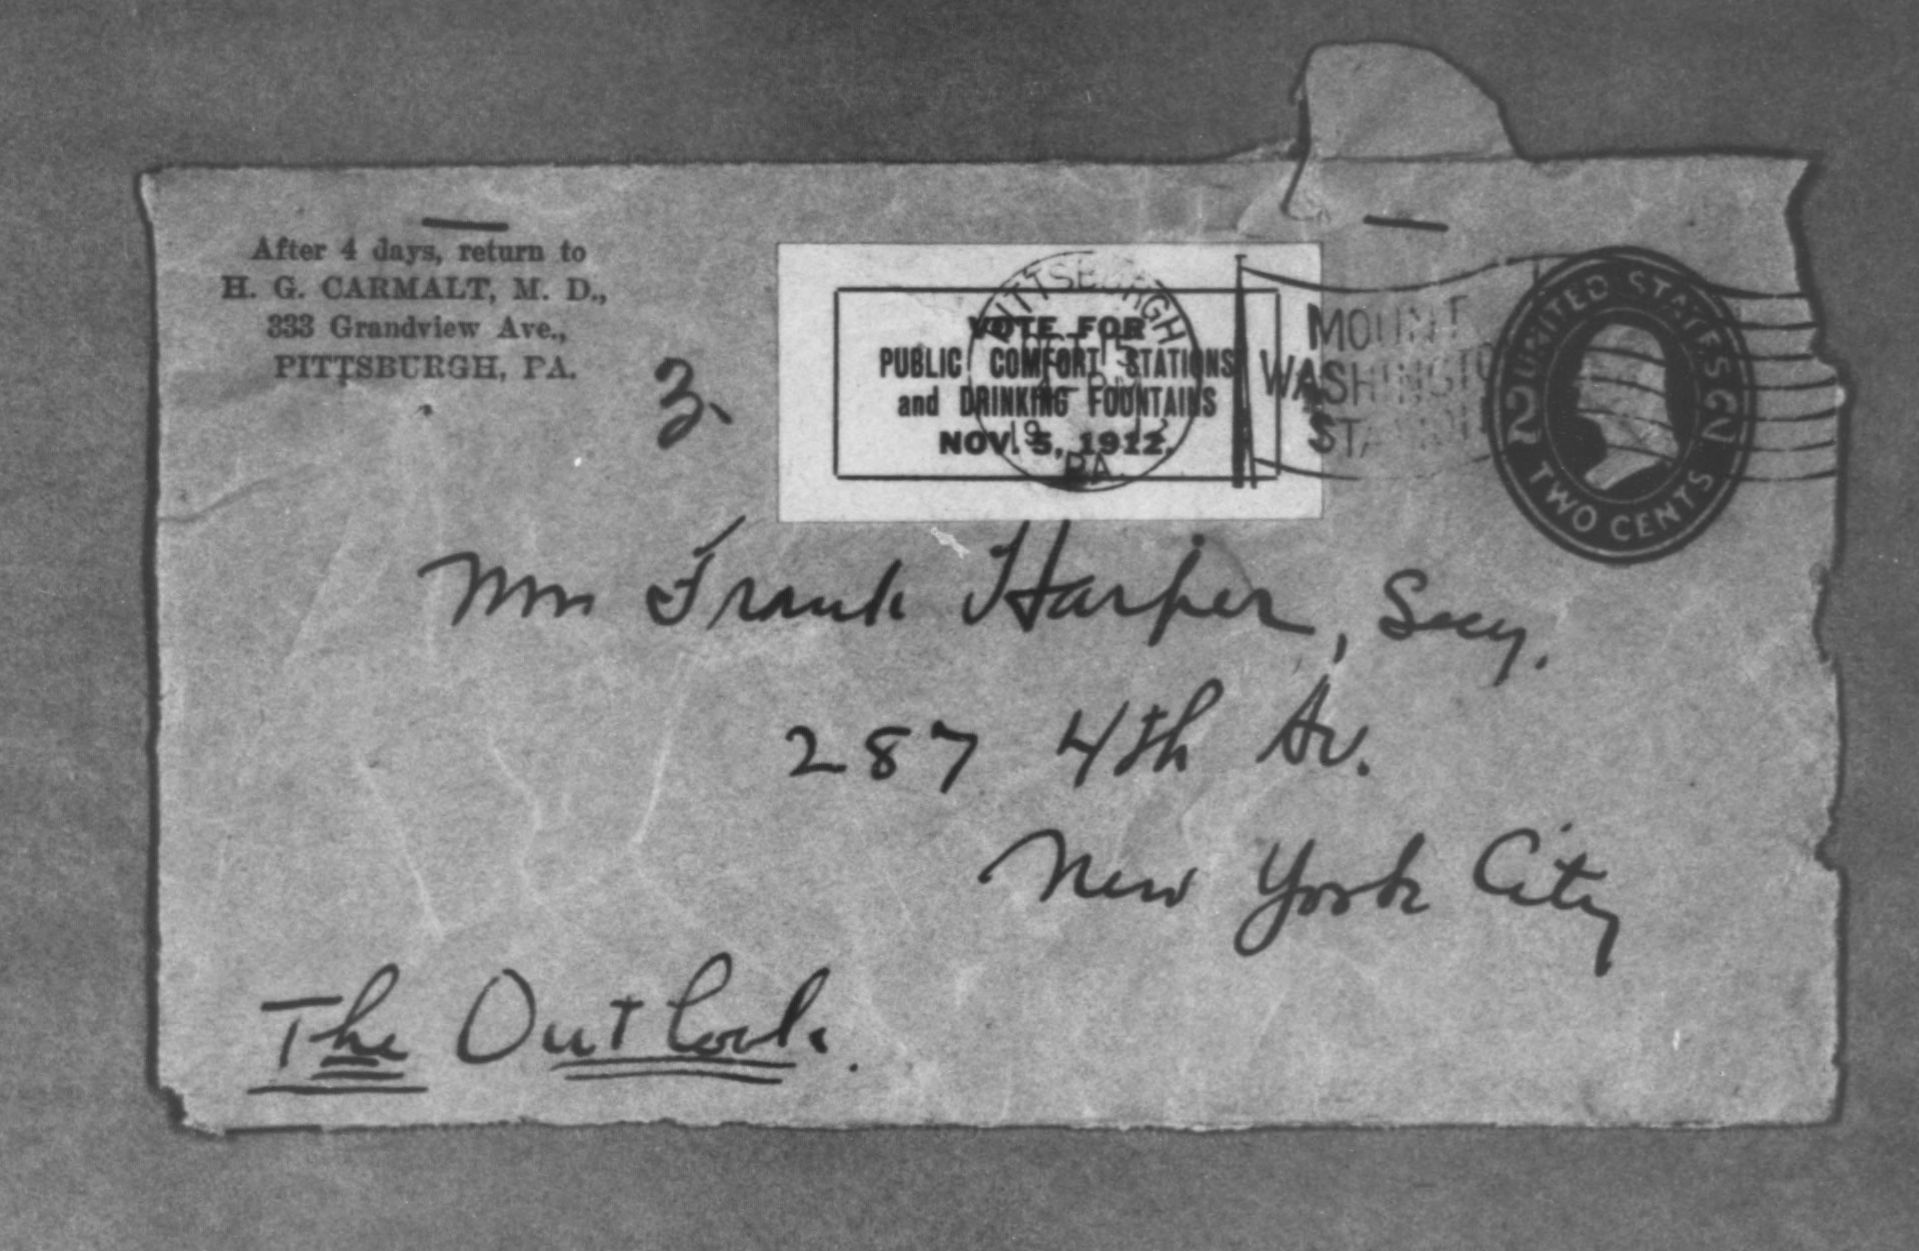 After 4 days, return to
H. G. CARMALT, M. D.,
333 Grandview Ave.,
PITTSBURGH, PA.
3.
VOTE FOR
PUBLIC COMFORT STATIONS
and DRINKING FOUNTAINS
NOV. 5, 1912.
PITTSBURGH
PA.
MOUNT
WASHINGTON
STATION
UNITED STATES
2 2
TWO CENTS
Mr Frank Harper, Secy.
287 4th Av.
New York City
The Outlook.